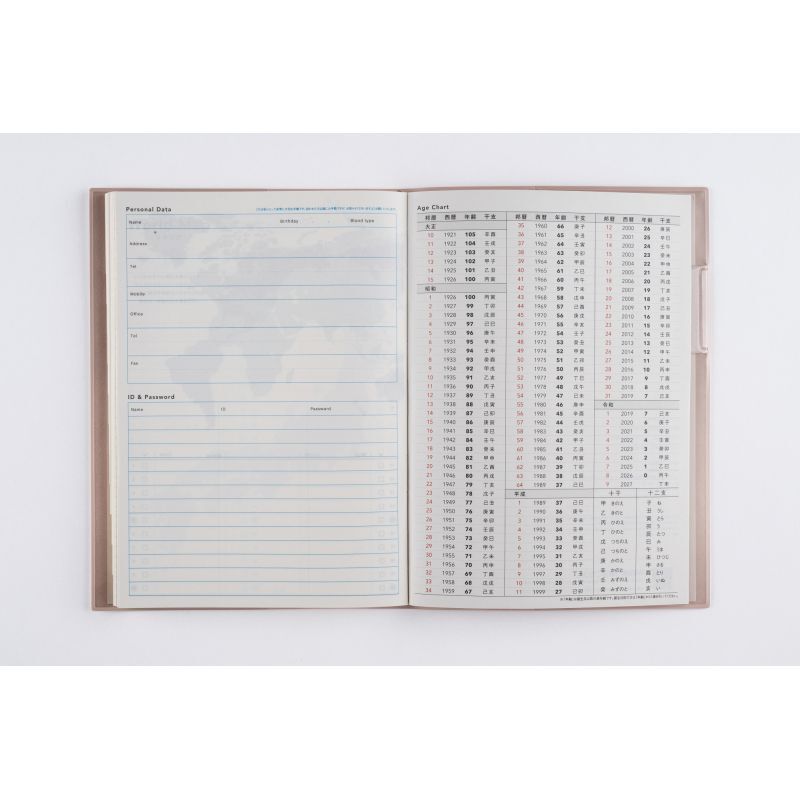 Personal Data
Name Birthday Blood type
Address
Tel
Mobile
Office
Tel
Fax
ID & Password
Name ID Password
Age Chart
邦暦 西暦 年齢 干支
大正
10 1921 105 辛酉
11 1922 104 壬戌
12 1923 103 癸亥
13 1924 102 甲子
14 1925 101 乙丑
15 1926 100 丙寅
昭和
1 1926 100 丙寅
2 1927 99 丁卯
3 1928 98 戊辰
4 1929 97 己巳
5 1930 96 庚午
6 1931 95 辛未
7 1932 94 壬申
8 1933 93 癸酉
9 1934 92 甲戌
10 1935 91 乙亥
11 1936 90 丙子
12 1937 89 丁丑
13 1938 88 戊寅
14 1939 87 己卯
15 1940 86 庚辰
16 1941 85 辛巳
17 1942 84 壬午
18 1943 83 癸未
19 1944 82 甲申
20 1945 81 乙酉
21 1946 80 丙戌
22 1947 79 丁亥
23 1948 78 戊子
24 1949 77 己丑
25 1950 76 庚寅
26 1951 75 辛卯
27 1952 74 壬辰
28 1953 73 癸巳
29 1954 72 甲午
30 1955 71 乙未
31 1956 70 丙申
32 1957 69 丁酉
33 1958 68 戊戌
34 1959 67 己亥
邦暦 西暦 年齢 干支
35 1960 66 庚子
36 1961 65 辛丑
37 1962 64 壬寅
38 1963 63 癸卯
39 1964 62 甲辰
40 1965 61 乙巳
41 1966 60 丙午
42 1967 59 丁未
43 1968 58 戊申
44 1969 57 己酉
45 1970 56 庚戌
46 1971 55 辛亥
47 1972 54 壬子
48 1973 53 癸丑
49 1974 52 甲寅
50 1975 51 乙卯
51 1976 50 丙辰
52 1977 49 丁巳
53 1978 48 戊午
54 1979 47 己未
55 1980 46 庚申
56 1981 45 辛酉
57 1982 44 壬戌
58 1983 43 癸亥
59 1984 42 甲子
60 1985 41 乙丑
61 1986 40 丙寅
62 1987 39 丁卯
63 1988 38 戊辰
64 1989 37 己巳
平成
1 1989 37 己巳
2 1990 36 庚午
3 1991 35 辛未
4 1992 34 壬申
5 1993 33 癸酉
6 1994 32 甲戌
7 1995 31 乙亥
8 1996 30 丙子
9 1997 29 丁丑
10 1998 28 戊寅
11 1999 27 己卯
邦暦 西暦 年齢 干支
12 2000 26 庚辰
13 2001 25 辛巳
14 2002 24 壬午
15 2003 23 癸未
16 2004 22 甲申
17 2005 21 乙酉
18 2006 20 丙戌
19 2007 19 丁亥
20 2008 18 戊子
21 2009 17 己丑
22 2010 16 庚寅
23 2011 15 辛卯
24 2012 14 壬辰
25 2013 13 癸巳
26 2014 12 甲午
27 2015 11 乙未
28 2016 10 丙申
29 2017 9 丁酉
30 2018 8 戊戌
31 2019 7 己亥
令和
1 2019 7 己亥
2 2020 6 庚子
3 2021 5 辛丑
4 2022 4 壬寅
5 2023 3 癸卯
6 2024 2 甲辰
7 2025 1 乙巳
8 2026 0 丙午
9 2027 丁未
十干
甲 きのえ
乙 きのと
丙 ひのえ
丁 ひのと
戊 つちのえ
己 つちのと
庚 かのえ
辛 かのと
壬 みずのえ
癸 みずのと
十二支
子 ね
丑 うし
寅 とら
卯 う
辰 たつ
巳 み
午 うま
未 ひつじ
申 さる
酉 とり
戌 いぬ
亥 い